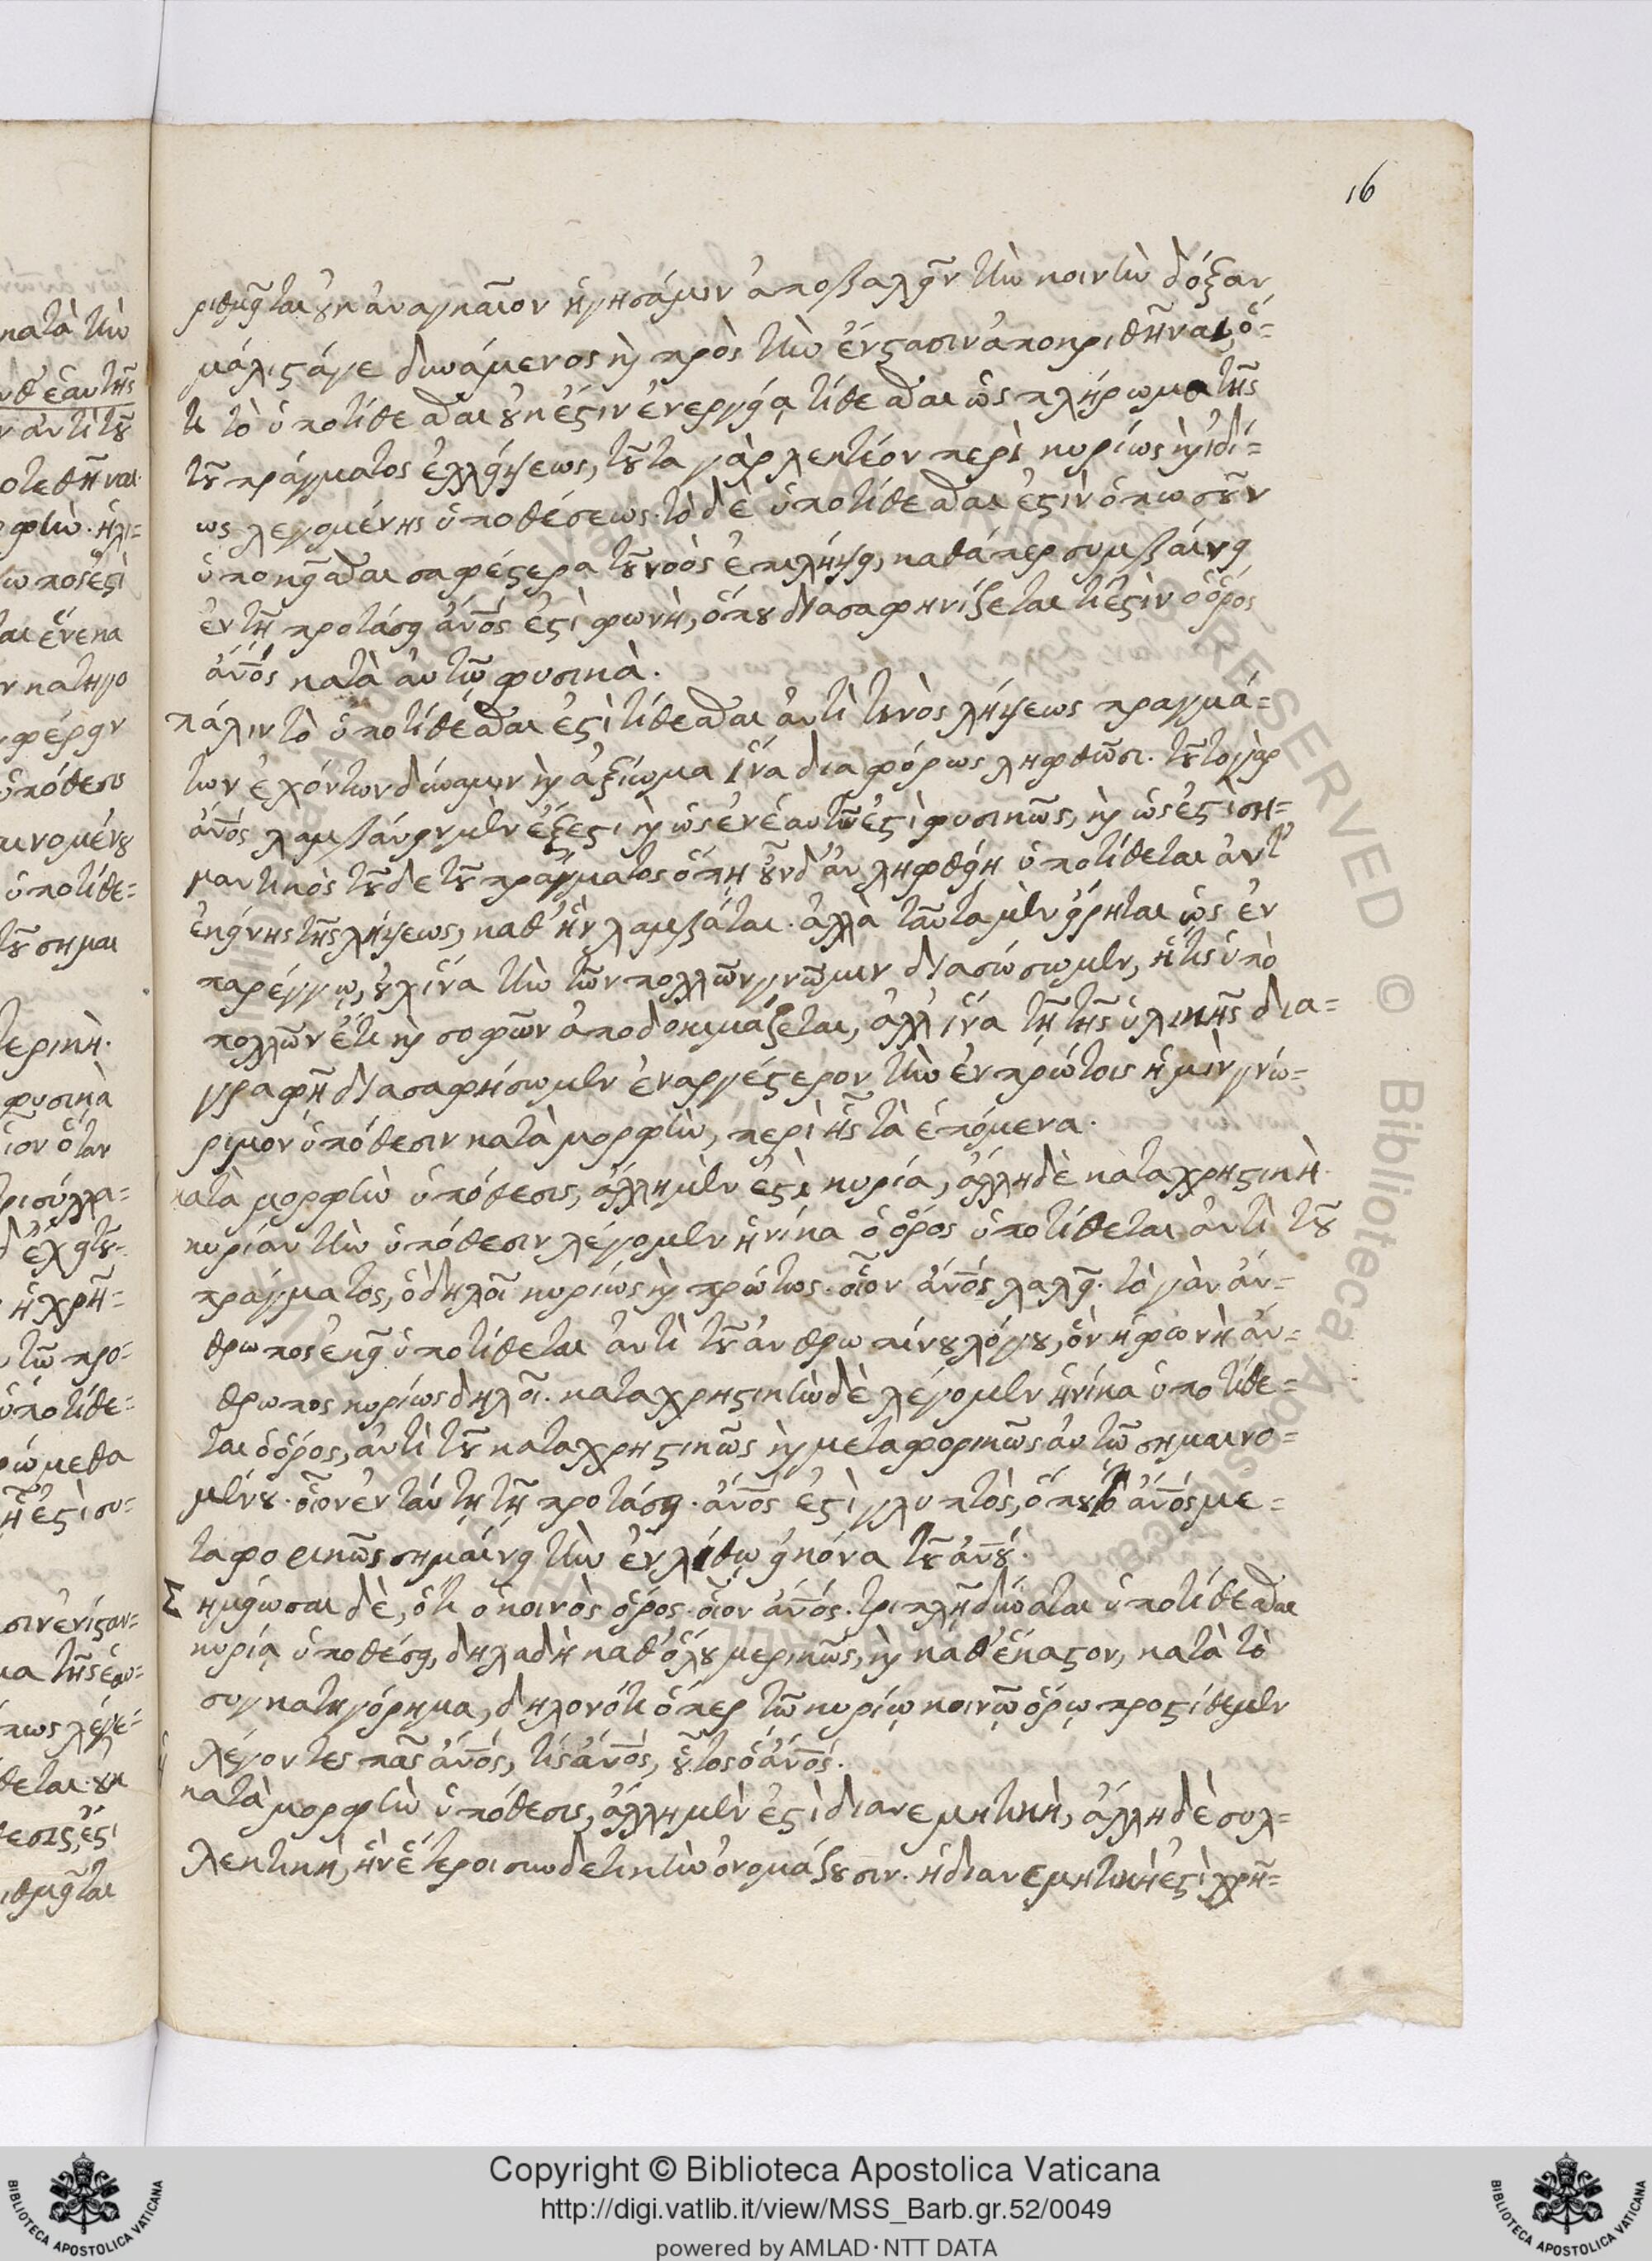 16
ριθμεῖται οὐκ ἀναγκαῖον ἡγησάμην ἀποβαλεῖν τὴν κοινὴν δόξαν
μάλιστάγε δυνάμενος καὶ πρὸς τὴν ἔνστασιν ἀποκριθῆναι, ὅ-
τι τὸ ὑποτίθεσθαι οὐκ ἔστιν ἐνεργείᾳ τίθεσθαι ὡς πλήρωμα τῆς
τοῦ πράγματος ἐλλείψεως, τοῦτα γὰρ λεκτέον περὶ κυρίως καὶ ἰδί-
ως λεγομένης ὑποθέσεως. τὸ δὲ ὑποτίθεσθαι ἐστὶν ὁπωσοῦν
ὑποκεῖσθαι σαφέστερα τοῦ νοὸς ἐπιλήψει, καθάπερ συμβαίνει
ἐν τῇ προτάσει ἄνος ἐστὶ φωνὴ, ὅπου διασαφηνίζεται τί ἐστὶν ὁ ὅρος
ἄνος κατὰ αὐτῷ φυσικὰ.
πάλιν τὸ ὑποτίθεσθαι ἐστὶ τίθεσθαι ἀντὶ τινὸς λήψεως πραγμά-
των ἐχόντων δύναμιν καὶ ἀξίωμα ἵνα διαφόρως ληφθῶσι. τοῦτο γὰρ
ἄνος λαμβάνειν μὲν ἔξεστι καὶ ὡς ἐν ἑαυτῷ ἐστὶ φυσικῶς, καὶ ὡς ἐστὶ ση-
μαντικὸς τοῦδε τοῦ πράγματος ὅπη οὖν δ' ἂν ληφθείη ὑποτίθεται ἀντ'
ἐκείνης τῆς λήψεως, καθ' ἣν λαμβάται. ἀλλὰ ταῦτα μὲν εἴρηται ὡς ἐν
παρέργῳ, οὐχ ἵνα τὴν τῶν πολλῶν γνῶμιν διασώσωμεν, ἥτις ὑπὸ
πολλῶν ἔτι καὶ σοφῶν ἀποδοκιμάζεται, ἀλλ' ἵνα τῇ τῆς ὑλικῆς δια-
γραφῇ διασαφήσωμεν ἐναργέστερον τὴν ἐν πρώτοις ἡμῖν γνώ-
ριμον ὑπόθεσιν κατὰ μορφὴν, περὶ ἧς τὰ ἑπόμενα.
κατὰ μορφὴν ὑπόθεσις, ἄλλη μὲν ἐστὶ κυρία, ἄλλη δὲ καταχρηστικὴ.
κυρίαν τὴν ὑπόθεσιν λέγομεν ἡνίκα ὁ ὅρος ὑποτίθεται ἀντὶ τοῦ
πράγματος, ὃ δηλοῖ κυρίως καὶ πρώτως. οἷον ἄνος λαλεῖ. τὸ γὰν ἄν-
θρωπος ἐκεῖ ὑποτίθεται ἀντὶ τοῦ ἀνθρωπίνου λόγου, ὃν ἡ φωνὴ ἄν-
θρωπος κυρίως δηλοῖ. καταχρηστικὴν δὲ λέγομεν ἡνίκα ὑποτίθε-
ται ὁ ὅρος, ἀντὶ τοῦ καταχρηστικῶς καὶ μεταφορικῶς αὐτῷ σημαινο-
μένου. οἷον ἐν ταύτῃ τῇ προτάσει. ἄνος ἐστὶ γλυπτὸς, ὅπου ὁ ἄνος με-
ταφορικῶς σημαίνει τὴν ἐν λίθῳ εἰκόνα τοῦ ἀνου.
Σημείωσαι δὲ, ὅτι ὁ κοινὸς ὅρος. οἷον ἄνος. τριπλῇ δύναται ὑποτίθεσθαι
κυρίᾳ ὑποθέσει, δηλαδὴ καθόλου μερικῶς, καὶ καθ' ἕκαστον, κατὰ τὸ
συγκατηγόρημα, δηλονότι ὅπερ τῷ κυρίῳ κοινῷ ὅρῳ προστίθεμεν
λέγοντες πᾶς ἄνος, τὶς ἄνος, οὗτος ὁ ἄνος.
κατὰ μορφὴν ὑπόθεσις, ἄλλη μὲν ἐστὶ διανεμητικὴ, ἄλλη δὲ συλ-
λεκτικὴ, ἣν ἕτεροι συνδετικὴν ὀνομάζουσιν. ἡ διανεμητικὴ ἐστὶ χρῆ-
Copyright © Biblioteca Apostolica Vaticana
http://digi.vatlib.it/view/MSS_Barb.gr.52/0049
powered by AMLAD·NTT DATA